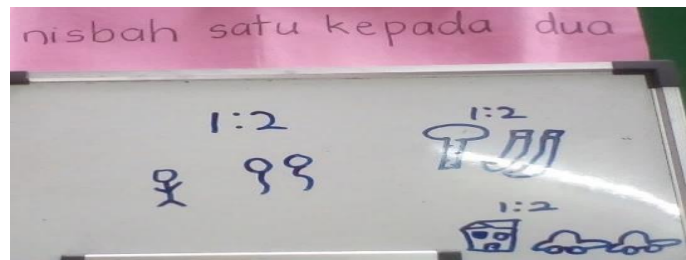 nisbah satu kepada dua
1:2
1:2
1:2